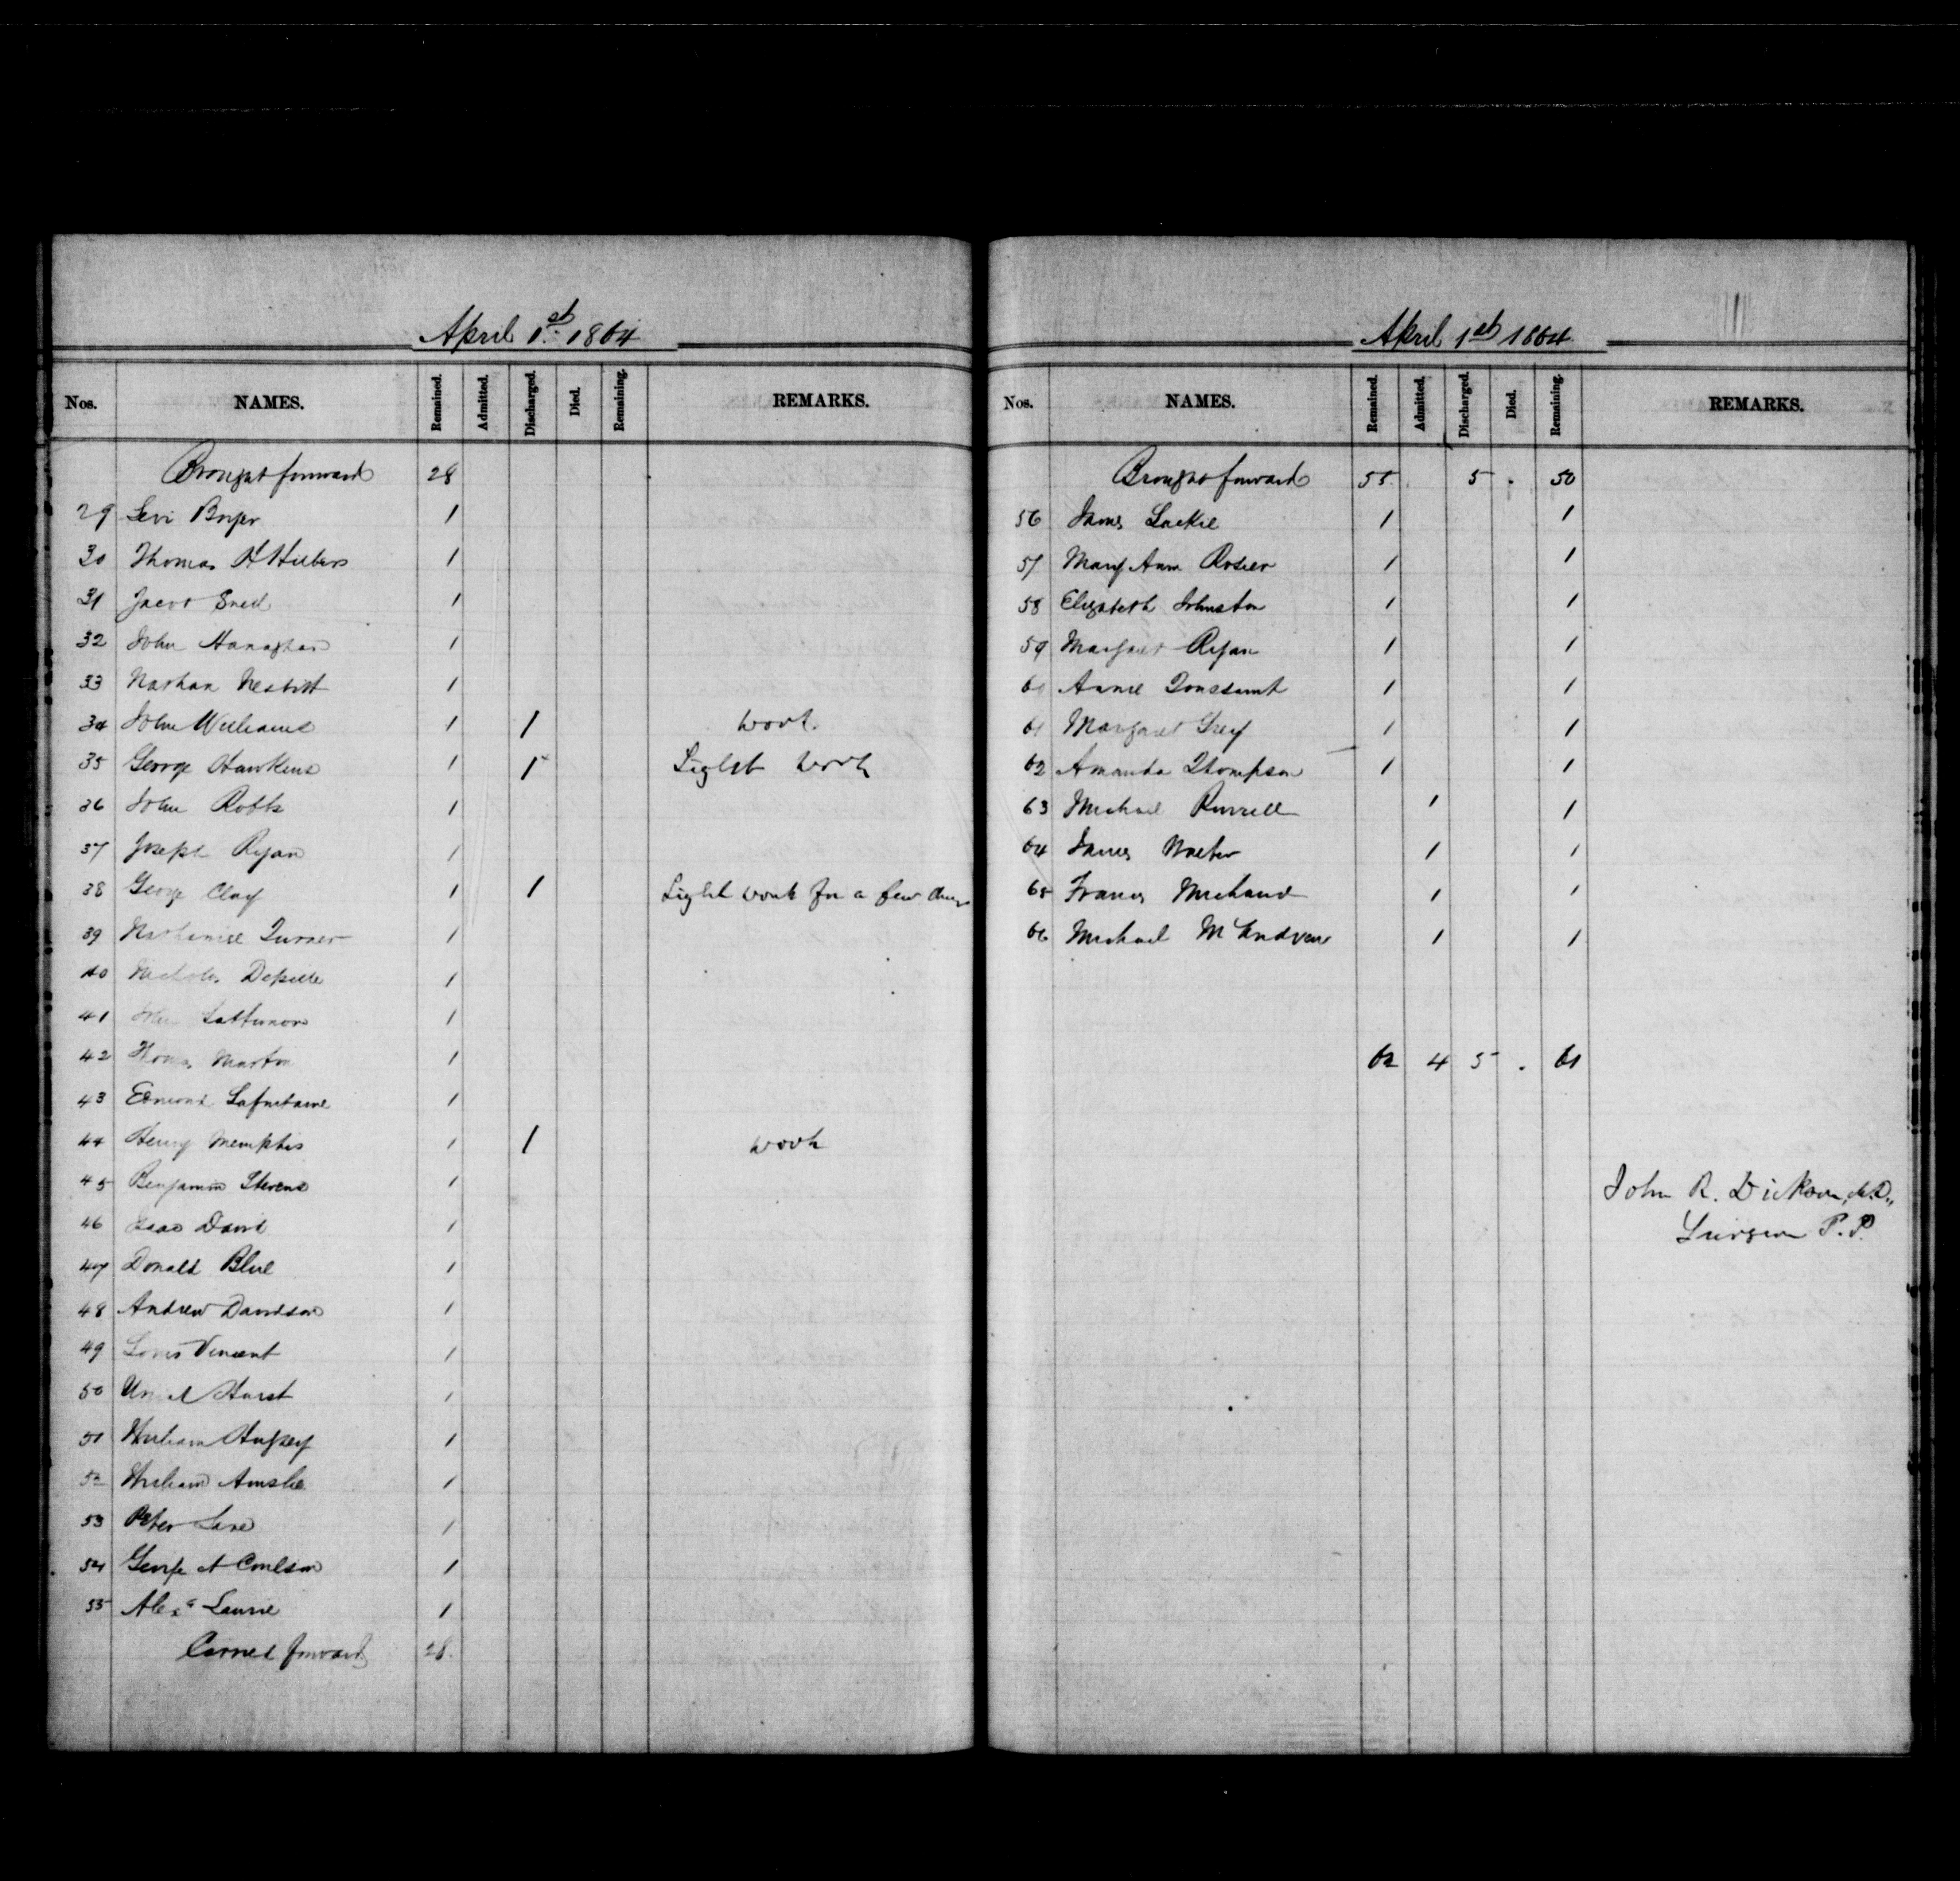 April 1st. 1864
Nos. NAMES. Remained. Admitted. Discharged. Died. Remaining. REMARKS.
Brought forward 28
29 Levi 1
30 Thomas H 1
31 Jacob Sned 1
32 John Hanaghan 1
33 Nathan Nesbitt 1
34 John Williams 1 1 work.
35 George Hawkins 1 1 Light work
36 John Robbs 1
37 Joseph Ryan 1
38 George Clay 1 1 Light work for a few days
39 Nathaniel Turner 1
40 1
41 John Lattimore 1
42 Thomas Martin 1
43 Edmond Lafontaine 1
44 Henry Memphis 1 1 work
45 Benjamin Stevens 1
46 Isaac David 1
47 Donald Blue 1
48 Andrew Davidson 1
49 Louis Vincent 1
50 Hurst 1
51 William 1
52 William Ainslie 1
53 Peter Lane 1
54 George A Coulson 1
55 Alexr Laurie 1
Carried forward 28.
April 1st 1864
Nos. NAMES. Remained. Admitted. Discharged. Died. Remaining. REMARKS.
Brought forward 55 5 . 50
56 James Lackie 1 1
57 Mary Ann Rosier 1 1
58 Elizabeth Johnston 1 1
59 Margaret Ryan 1 1
60 Annie Toussaint 1 1
61 Margaret Grey 1 1
62 Amanda Thompson 1 1
63 Michael 1 1
64 James 1 1
65 Francis Michaud 1 1
66 Michael McAndrew 1 1
62 4 5 . 61
John R. Dickson, M.D.,
Surgeon P. P.